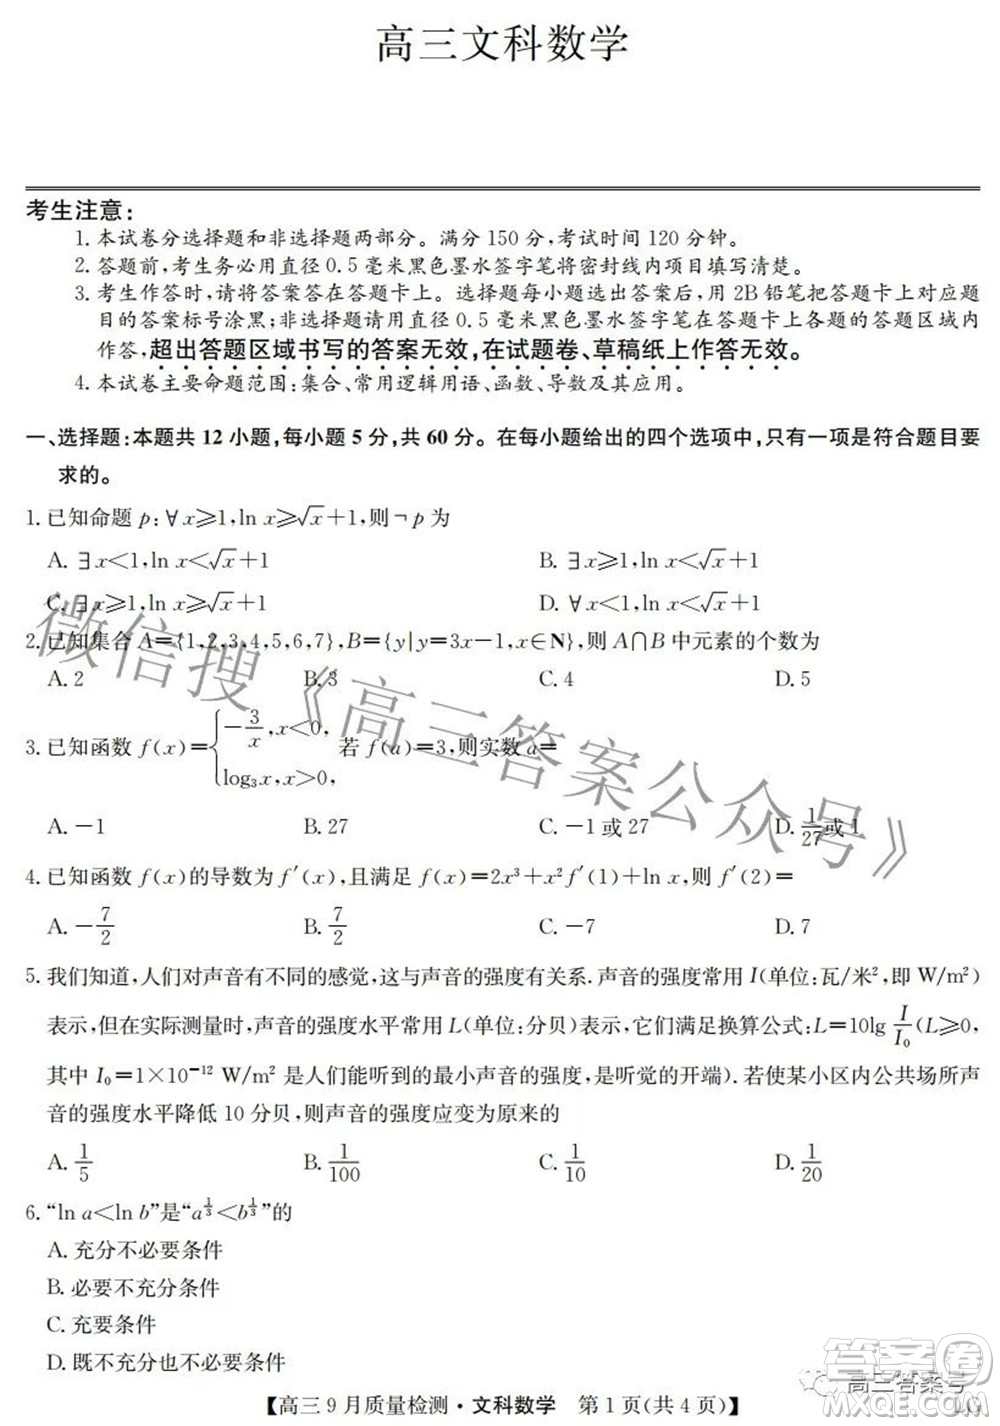 高三文科数学
考生注意:
1. 本试卷分选择题和非选择题两部分。满分 150 分,考试时间 120 分钟。
2. 答题前,考生务必用直径 0.5 毫米黑色墨水签字笔将密封线内项目填写清楚。
3. 考生作答时,请将答案答在答题卡上。选择题每小题选出答案后,用 2B 铅笔把答题卡上对应题
目的答案标号涂黑;非选择题请用直径 0.5 毫米黑色墨水签字笔在答题卡上各题的答题区域内
作答,超出答题区域书写的答案无效,在试题卷、草稿纸上作答无效。
4. 本试卷主要命题范围:集合、常用逻辑用语、函数、导数及其应用。
一、选择题:本题共 12 小题,每小题 5 分,共 60 分。在每小题给出的四个选项中,只有一项是符合题目要
求的。
1. 已知命题 p:∀x≥1,ln x≥√x+1,则¬p 为
A. ∃x<1,ln x<√x+1 B. ∃x≥1,ln x<√x+1
C. ∃x≥1,ln x≥√x+1 D. ∀x<1,ln x<√x+1
2. 已知集合 A={1,2,3,4,5,6,7},B={y|y=3x−1,x∈N},则 A∩B 中元素的个数为
A. 2 B. 3 C. 4 D. 5
3. 已知函数 f(x)={−3/x,x<0, log₃x,x>0, 若 f(a)=3,则实数 a=
A. −1 B. 27 C. −1 或 27 D. 1/27 或 1
4. 已知函数 f(x)的导数为 f′(x),且满足 f(x)=2x³+x²f′(1)+ln x,则 f′(2)=
A. −7/2 B. 7/2 C. −7 D. 7
5. 我们知道,人们对声音有不同的感觉,这与声音的强度有关系. 声音的强度常用 I(单位:瓦/米²,即 W/m²)
表示,但在实际测量时,声音的强度水平常用 L(单位:分贝)表示,它们满足换算公式:L=10lg I/I₀(L≥0,
其中 I₀=1×10⁻¹² W/m² 是人们能听到的最小声音的强度,是听觉的开端). 若使某小区内公共场所声
音的强度水平降低 10 分贝,则声音的强度应变为原来的
A. 1/5 B. 1/100 C. 1/10 D. 1/20
6. “ln a<ln b”是“a^(1/3)<b^(1/3)”的
A. 充分不必要条件
B. 必要不充分条件
C. 充要条件
D. 既不充分也不必要条件
【高三 9 月质量检测·文科数学 第 1 页(共 4 页)】
LG
微信搜《高三答案公众号》
高三答案号
答案圈
MXQE.COM